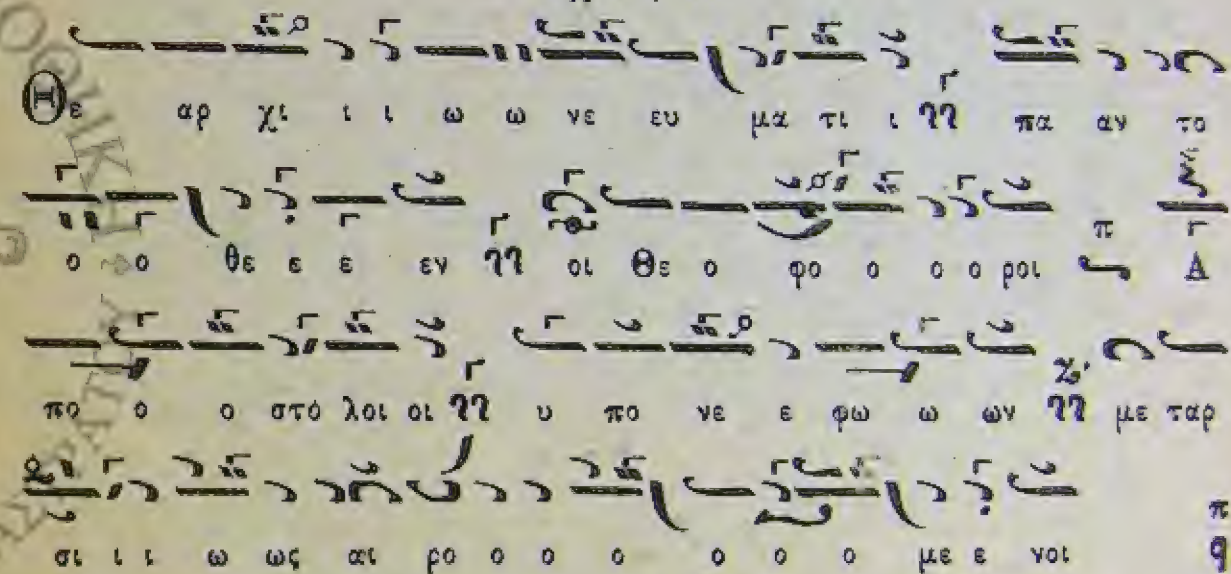 Θε αρ χι ι ι ω ω νε ευ μα τι ι πα αν το
ο ο θε ε ε εν οι Θε ο φο ο ο ο ροι π Α
πο ο ο στό λοι οι υ πο νε ε φω ω ων με ταρ
σι ι ι ω ως αι ρο ο ο ο ο ο ο με ε νοι π q